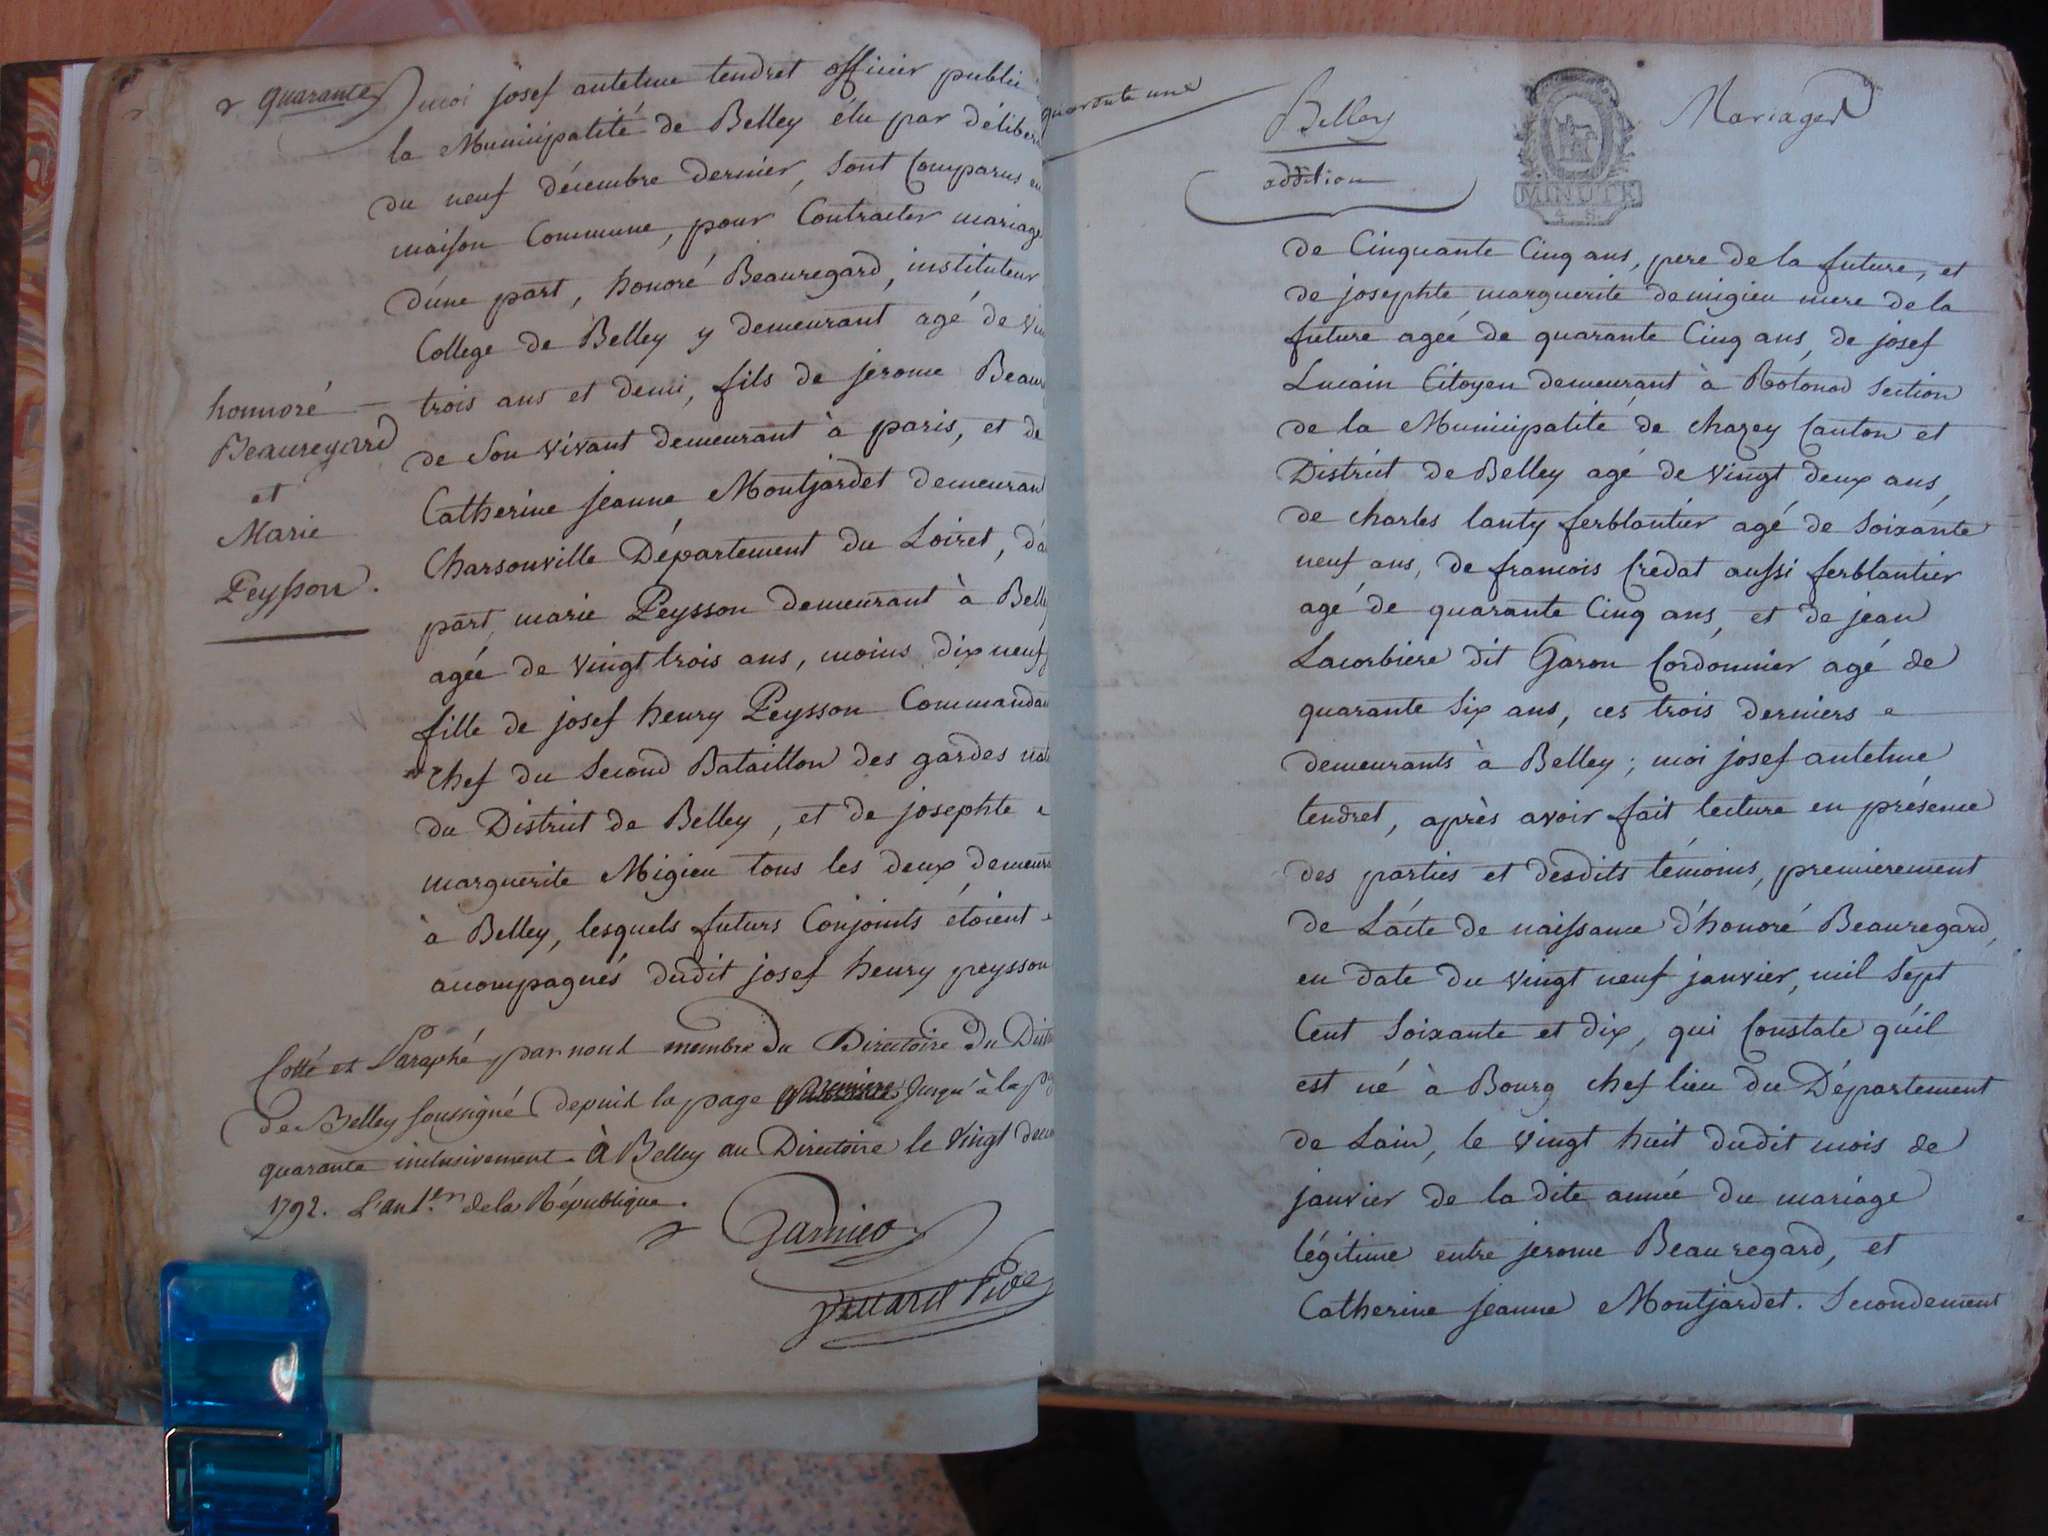 quarante
moi josef antelme tendret officier public
la Municipalité de Belley élu par délibera
du neuf décembre dernier, sont Comparus en
maison Commune, pour Contracter mariage
d'une part, honoré Beauregard, instituteur
College de Belley y demeurant agé de vin
trois ans et demi, fils de jerome Beaur
de son vivant demeurant à paris, et de
Catherine jeanne Montjardet demeurant
Charsonville Département du Loiret, d'au
part, marie Peysson demeurant à Belley
agée de vingt trois ans, moins dix neuf
fille de josef henry Peysson Commandan
chef du Second Bataillon des gardes nat
du District de Belley, et de josephte
marguerite Migieu tous les deux demeura
à Belley, lesquels futurs Conjoints étoient
acompagnés dudit josef henry peysson
honnoré
Beauregard
et
Marie
Peysson.
Cotté et Paraphé par nous membre du Directoire du Dist
de Belley soussigné depuis la page premiere jusqu'à la pa
quarante inclusivement. à Belley au Directoire le vingt decem
1792. L'an 1.er de la République.
Garnier
quarante une
Belley
addition
Mariages
MINUTE
4 S.
de Cinquante Cinq ans, pere de la future, et
de josephte marguerite demigieu mere de la
future ageé de quarante Cinq ans, de josef
Lucain Citoyen demeurant à Rotonod section
de la Municipalité de chazey Canton et
District de Belley agé de vingt deux ans,
de charles lanty ferblantier agé de soixante
neuf ans, de francois Credat aussi ferblantier
agé de quarante Cinq ans, et de jean
Lacorbiere dit Garon Cordonnier agé de
quarante six ans, ces trois derniers
demeurants à Belley; moi josef antelme
tendret, après avoir fait lecture en présence
des parties et desdits témoins, premierement
de L'acte de naissance d'honoré Beauregard,
en date du vingt neuf janvier, mil sept
Cent soixante et dix, qui Constate qu'il
est né à Bourg chef lieu du Département
de Lain, le vingt huit dudit mois de
janvier de la dite année du mariage
légitime entre jerome Beauregard, et
Catherine jeanne Montjardet. Secondement